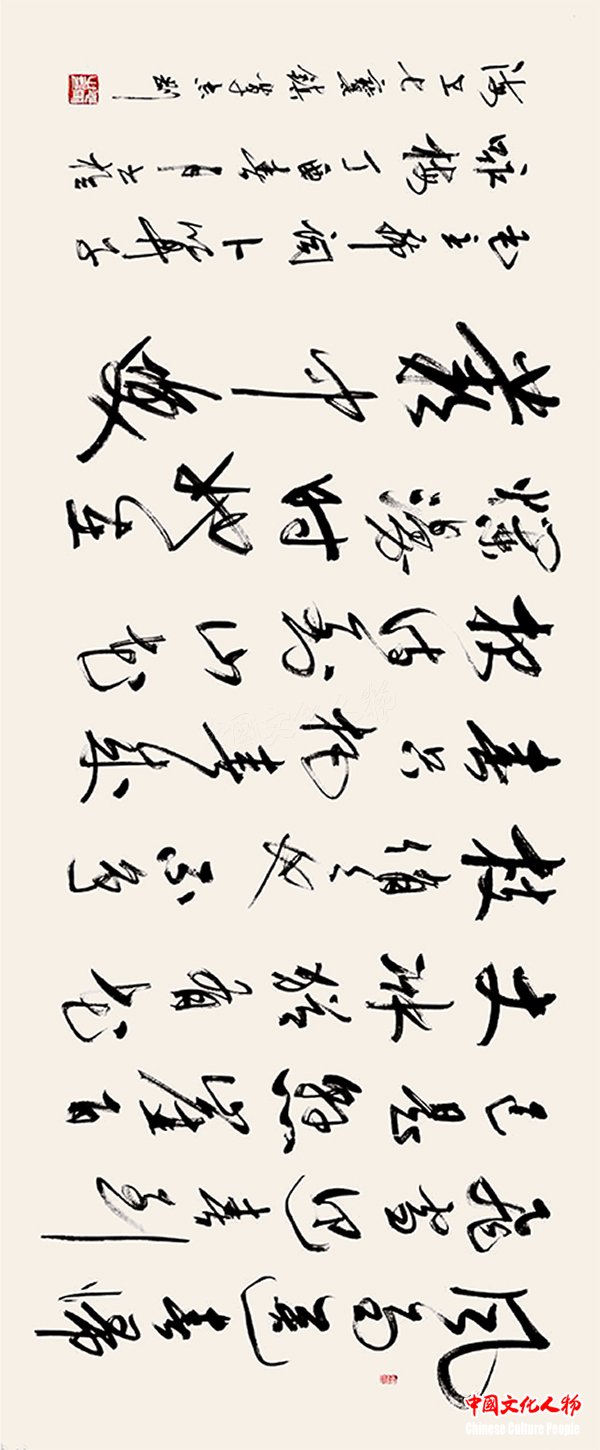 风雨送春归
飞雪迎春到
已是悬崖百
丈冰犹有花
枝俏也不争
春只把春来
报待到山花
烂漫时她在
丛中笑
毛主席词卜算子
咏梅丁酉春月书于
海上七宝镇
中國文化人物
Chinese Culture People